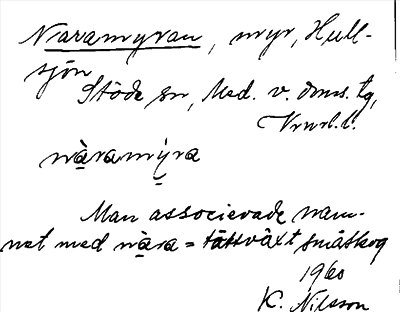 Naramyran, myr, Hull-
sjön
Stöde sn, Med. v. dms. tg,
nàramỳra
Man associerade nam-
net med nàra = tättväxt småskog
1960
K. Nilsson